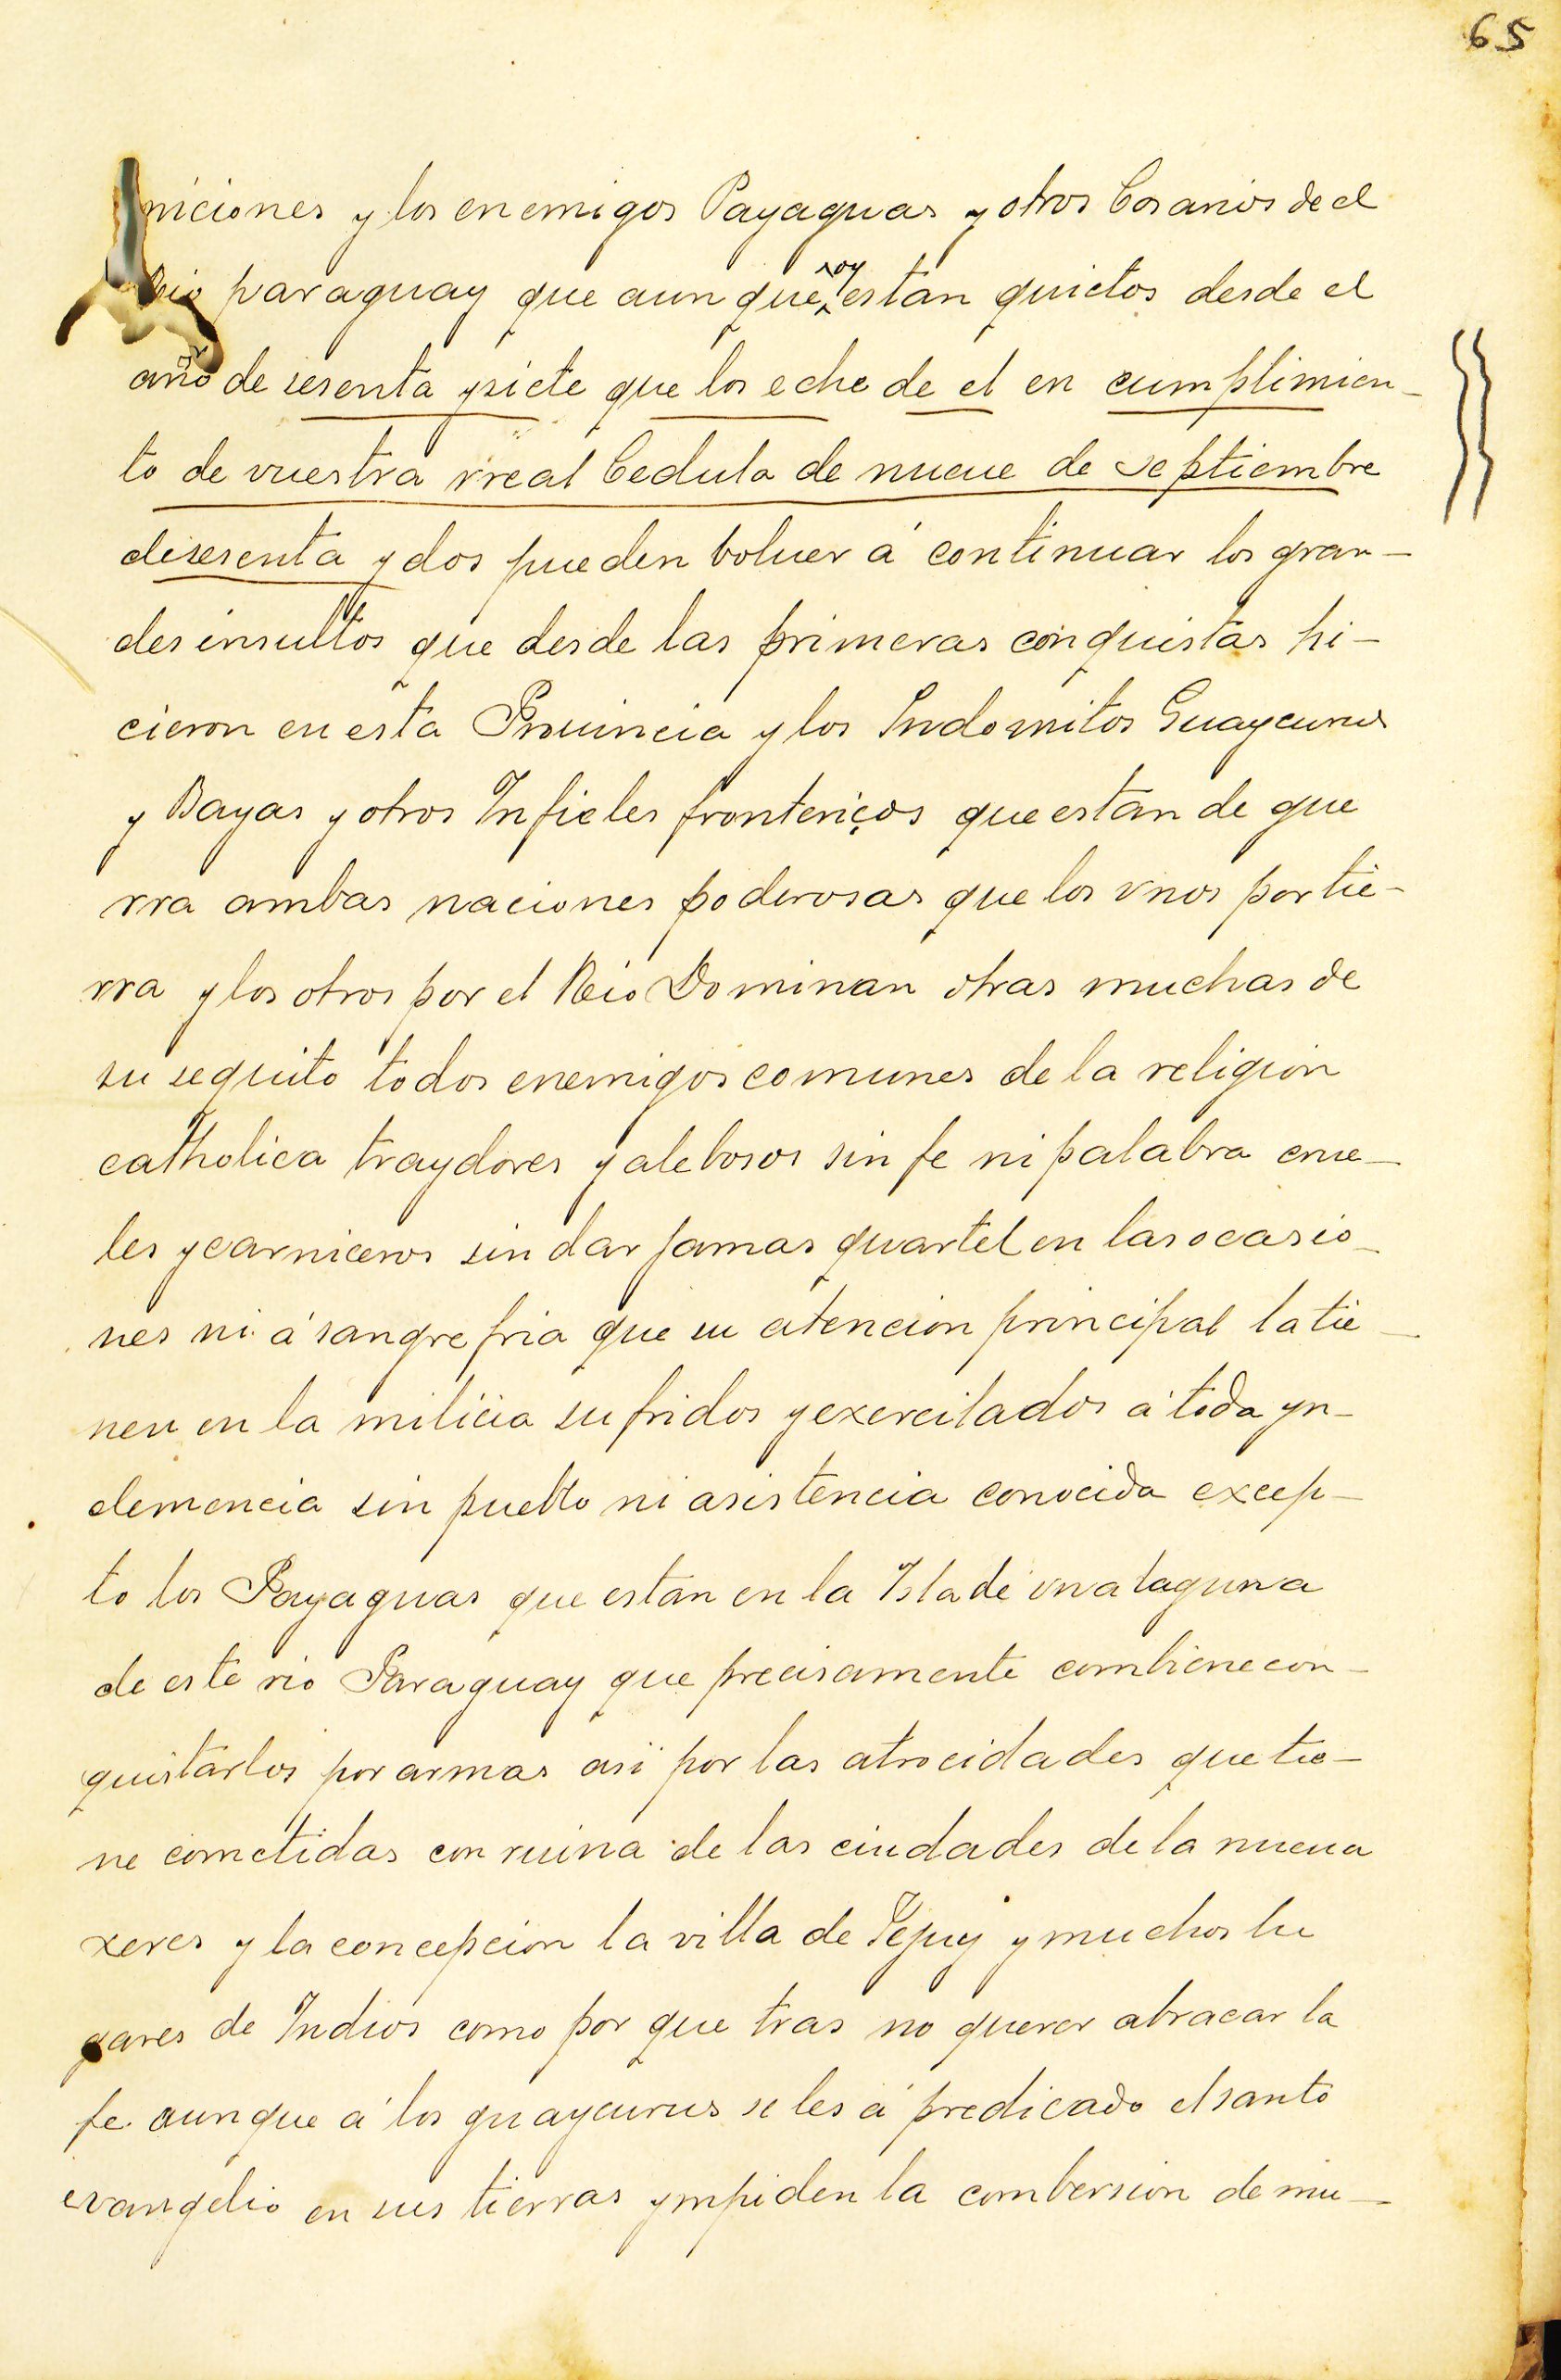 65
niciones y los enemigos Payaguas y otros Cosarios de el
Rio paraguay que aunque oy estan quietos desde el
año de sesenta y siete que los eche de el en cumplimien-
to de vuestra rreal Cedula de nueue de septiembre
de sesenta y dos pueden boluer á continuar los gran-
des insultos que desde las primeras conquistas hi-
cieron en esta Prouincia y los Indomitos Guaycurus
y Bayas y otros Infieles fronteriços que estan de gue
rra ambas naciones poderosas que los vnos por tie-
rra y los otros por el Rio Dominan otras muchas de
su sequito todos enemigos comunes de la religion
catholica traydores y alebosos sin fe ni palabra crue-
les y carniceros sin dar jamas quartel en las ocasio-
nes ni á sangre fria que su atencion principal la tie-
nen en la milicia sufridos y exercitados á toda yn-
clemencia sin pueblo ni asistencia conocida excep-
to los Payaguas que estan en la Isla de vna laguna
de este rio Paraguay que precisamente combiene con-
quistarlos por armas asi por las atrocidades que tie-
ne cometidas con ruina de las ciudades de la nueua
xeres y la concepcion la villa de y muchos lu
gares de Indios como por que tras no querer abracar la
fe aunque á los guaycurus se les á predicado el santo
evangelio en sus tierras ympiden la combersion de mu-